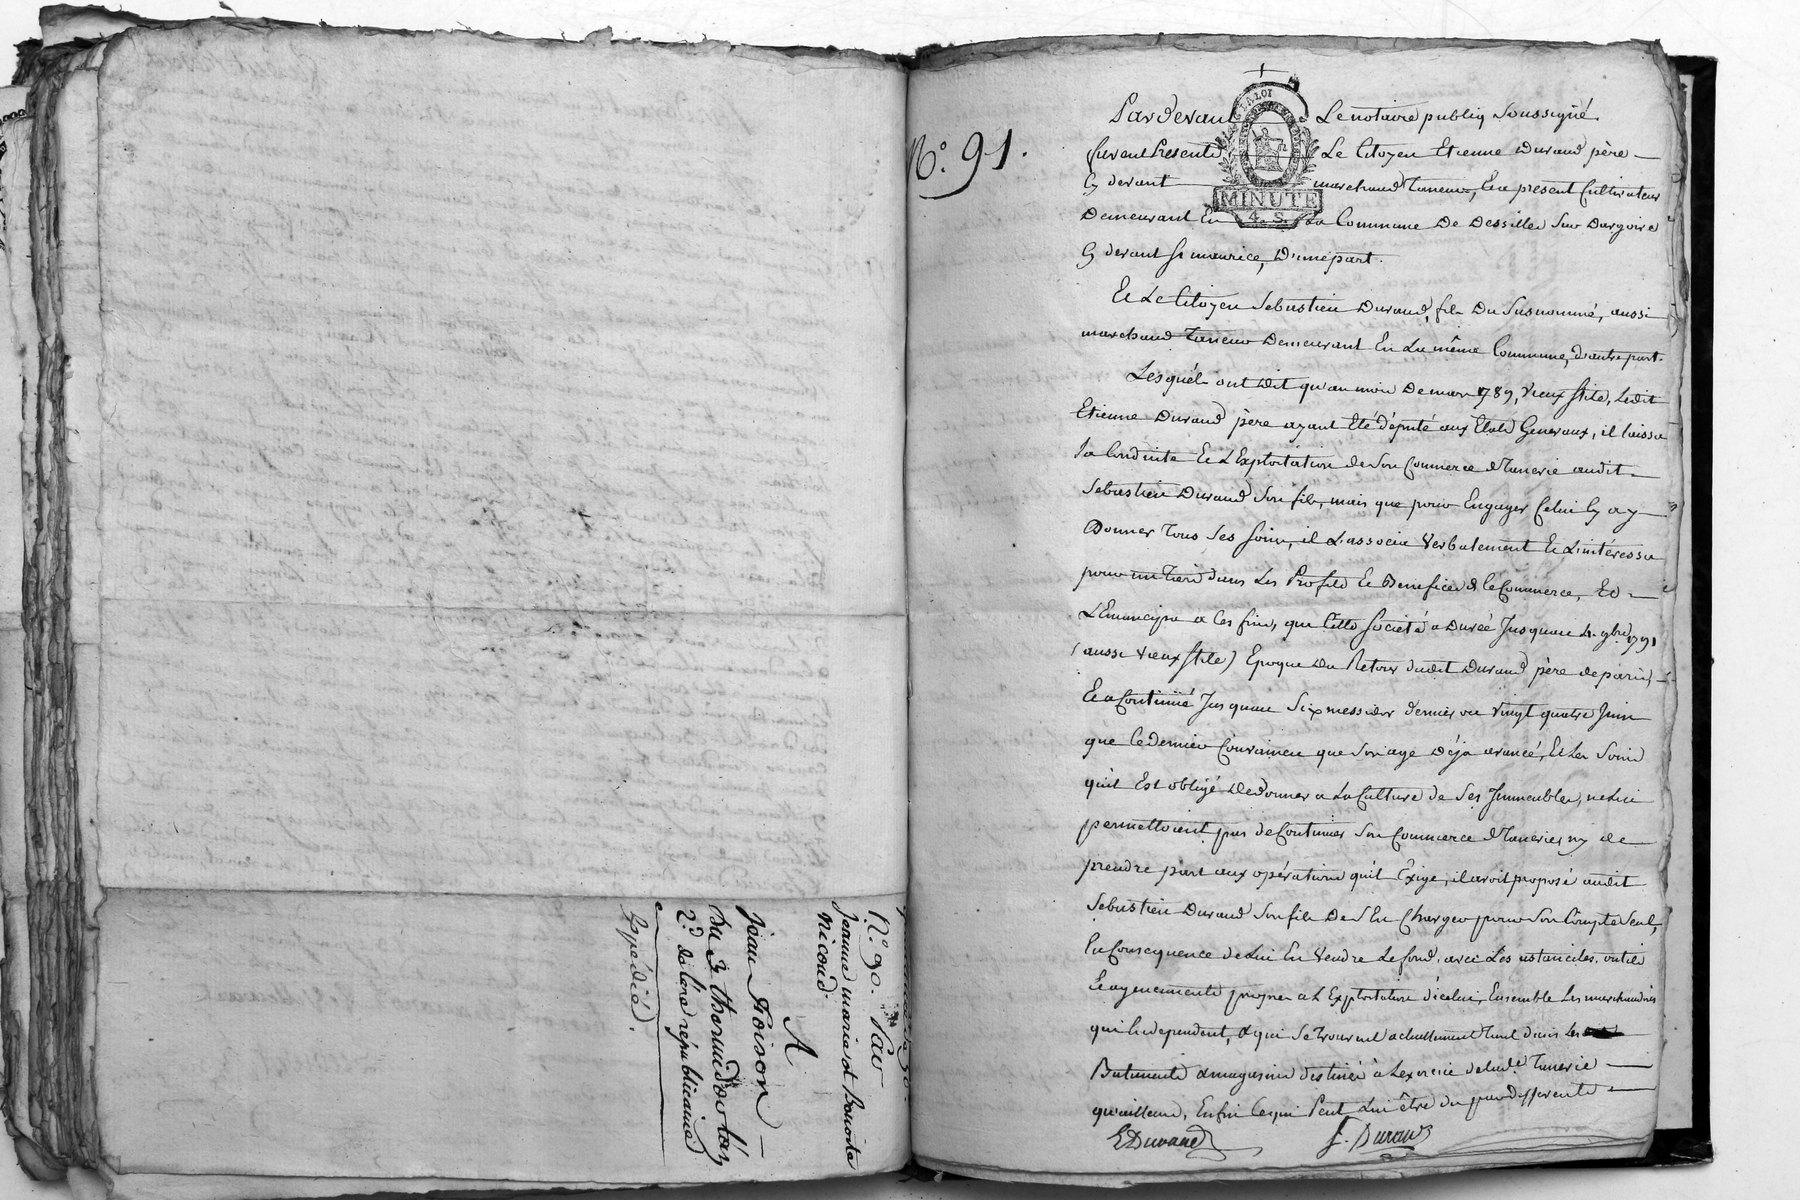 N.° 90. Par
jeanne marie et Benoite
nicoud.
A
jean Poison
Du 3 thermidor l'an
2.e de l'ere républicaine
Expédié.
N.° 91.
LA LOI
MINUTE
4. S.
Pardevant Le notaire publiq Soussigné
furent Presents Le Citoyen Etienne Durand père
Cy devant marchand Taneur, En present Cultivateur
Demeurant En La Commune De Dessille Sur Dargoire
Cy devant St maurice, D'une part.
Et Le Citoyen Sebastien Durand, fils Du Susnommé, aussi
marchand Taneur Demeurant En La même Commune, d'autre part.
Lesquels ont Dit qu'au mois De mars 1789, vieux Stile, Ledit
Etienne Durand père ayant Eté député aux Etats Generaux, il laissa
la Conduite Et L'Exploitation de Son Commerce de Tanerie audit
Sebastien Durand Son fils, mais que pour Engager Celui Cy a y
Donner Tous Ses Soins, il L'associa Verbalement Et L'intéressa
pour un Tiers dans Les Profits Et Benefices de Ce Commerce, Et
L'Emancipa a Ces fins, que Cette Societé a Durée Jusquau 4. 9bre 1791
(aussi vieux Stile) Epoque Du Retour dudit Durand père de paris,
Et a Continué Jusquau Six messidor dernier ou vingt quatre Juin
que Ce dernier Convaincu que Son age Déja avancé, Et Les Soins
qu'il Est obligé De Donner a La Culture de Ses Immeubles, ne Lui
permettoient pas de Continuer Son Commerce de Taneries ny de
prendre part aux opérations qu'il Exige, il avoit proposé audit
Sebastien Durand Son fils De S'En Charger pour Son Compte Seul,
En Consequence de Lui En Vendre Le fond, avec Les ustanciles, outils
Et agencements propres a L'Exploitation d'icelui, Ensemble Les marchandises
qui En dependent, & qui Se Trouvent actuellement Tant dans Les
Batiments & magasins destinés à L'exercice de ladite Tanerie
qu'ailleurs, Enfin Ce qui Peut Lui être du par differents
E Durand S. Durand